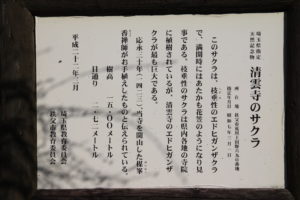 埼玉県指定
天然記念物
清雲寺のサクラ
このサクラは、枝垂性のエドヒガンザクラ
で、満開時にはあたかも花笠のようになり見
事である。枝垂性のサクラは県内各地の寺院
に植樹されているが、清雲寺のエドヒガンザ
クラが最も巨大である。
応永二十年(一四一三)、当寺を開山した楳峯
香禅師がお手植えしたものと伝えられている。
樹高 一五・〇〇メートル
目通り 二・七二メートル
平成二十二年三月
埼玉県教育委員会
秩父市教育委員会